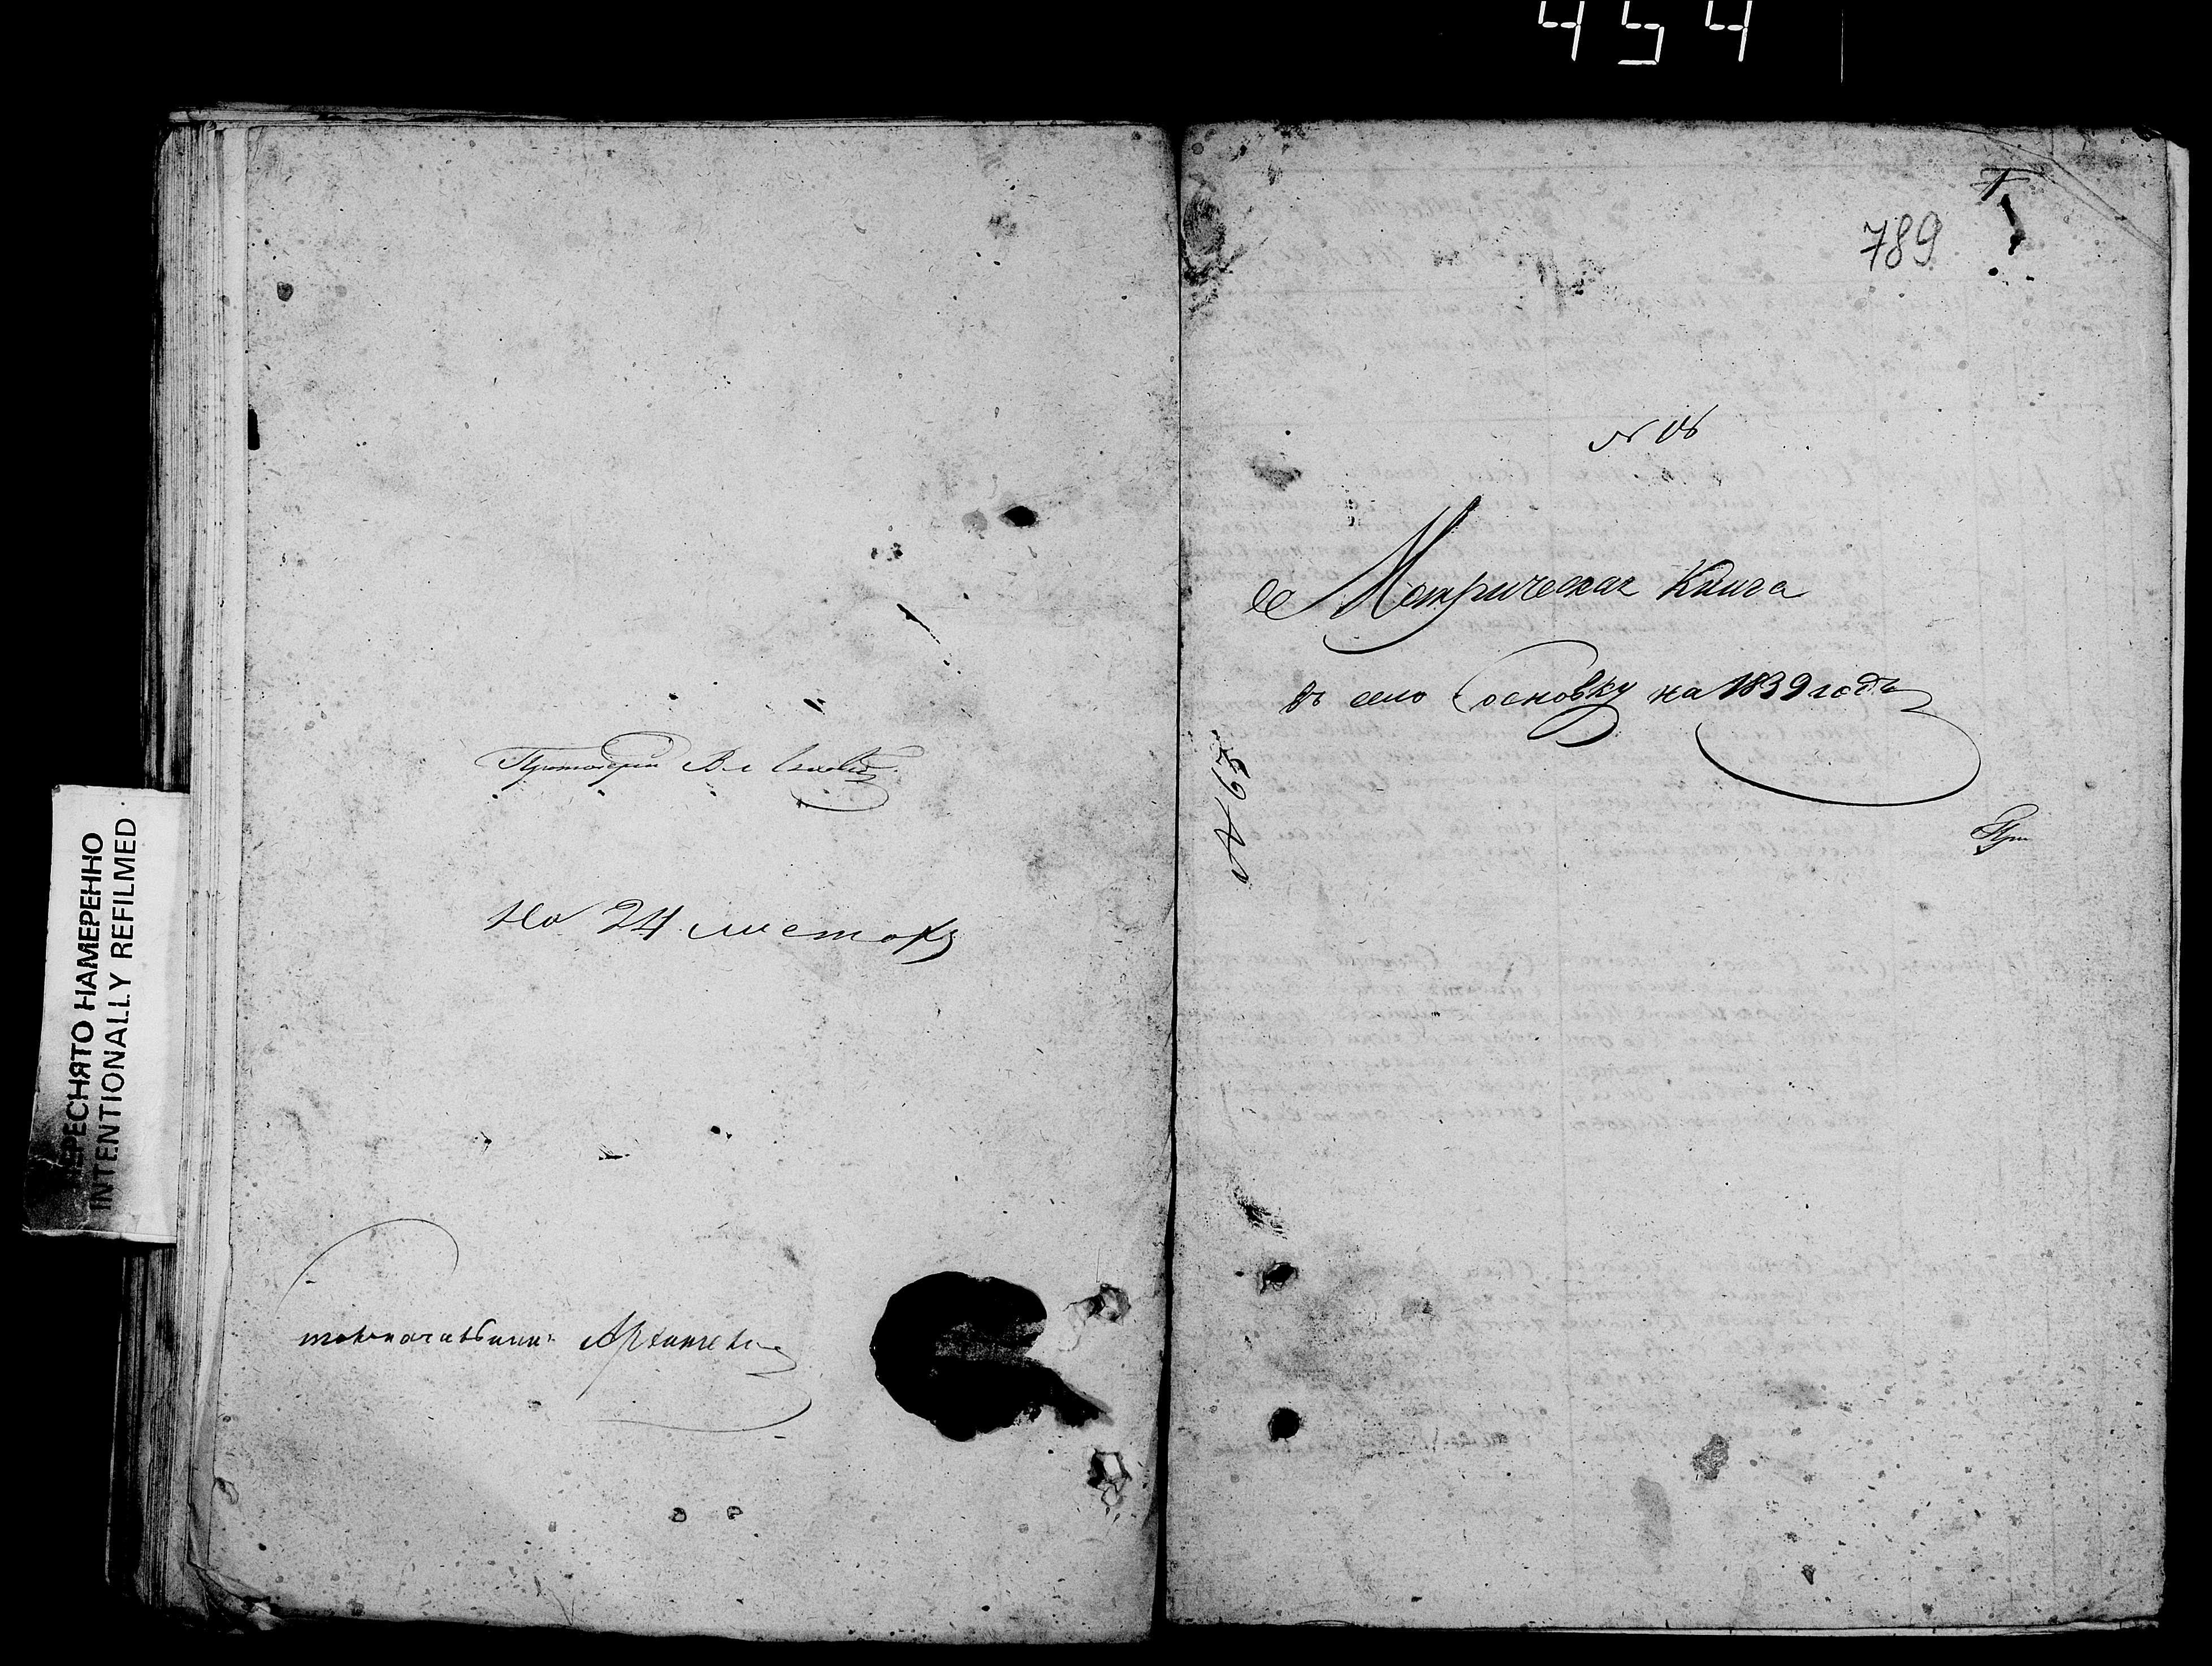 454
ПЕРЕСНЯТО НАМЕРЕННО
INTENTIONALLY REFILMED
Протоіерей Вл
На 24 листахъ
789
N 18
Метрическая Книга
въ село Сосновку на 1839 годъ
N 63
Про